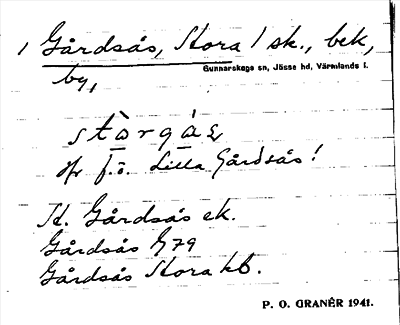 1 Gårdsås, Stora 1 sk., bek,
Gunnarskogs sn, Jösse hd, Värmlands l.
by,
f.ö. Lilla Gårdsås!
Gårdsås ek.
Gårdsås G 79
Gårdsås Stora kb.
P. O. GRANÉR 1941.